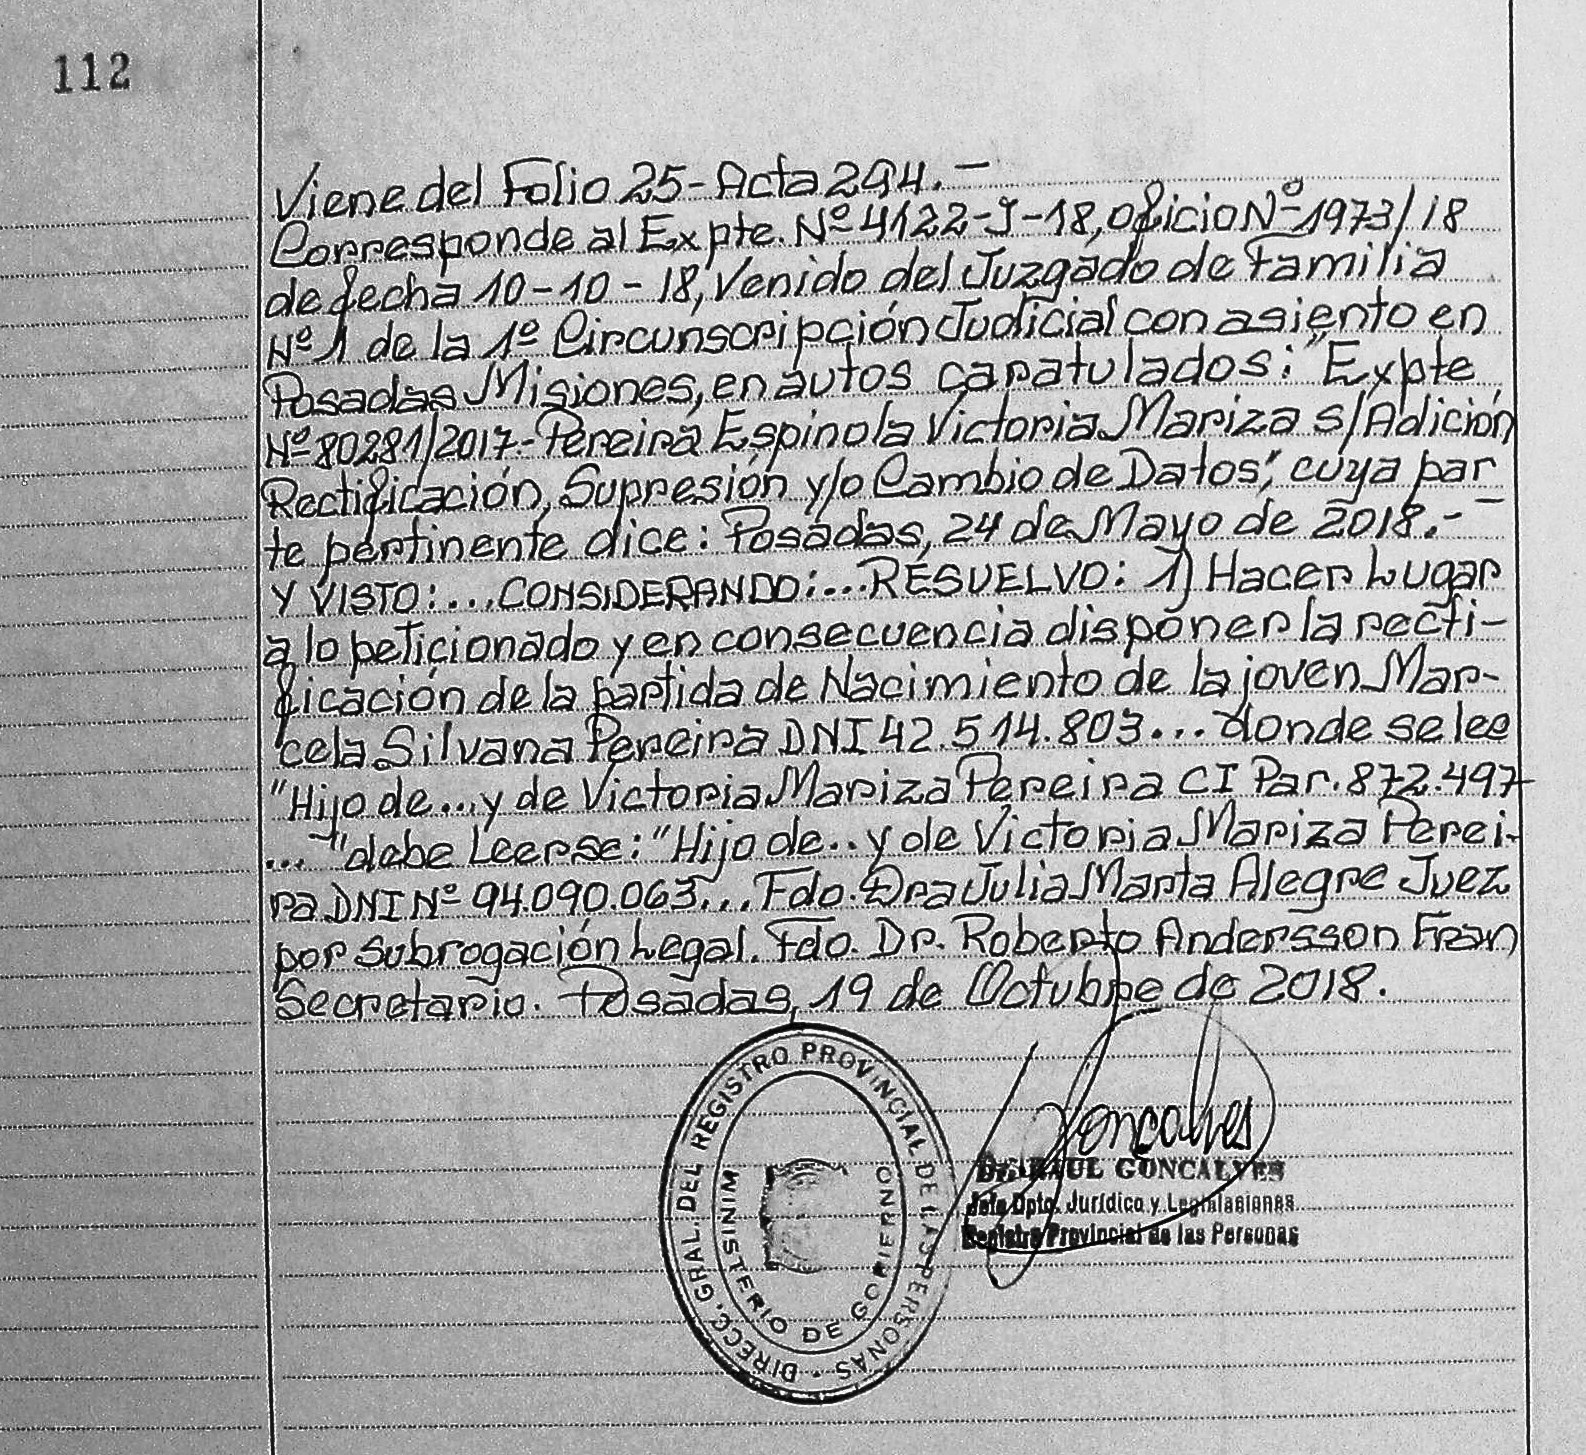 112
Viene del Folio 25-Acta 294.-
Corresponde al Expte. Nº 4122-J-18, oficio Nº 1973/18
de fecha 10-10-18, Venido del Juzgado de Familia
Nº 1 de la 1º Circunscripción Judicial con asiento en
Posadas Misiones, en autos caratulados: "Expte
Nº 80281/2017.- Pereira Espinola Victoria Mariza s/Adición
Rectificación, Supresión y/o Cambio de Datos", cuya par
te pertinente dice: Posadas, 24 de Mayo de 2018.-
Y VISTO:...CONSIDERANDO:...RESUELVO: 1) Hacer Lugar
a lo peticionado y en consecuencia disponer la recti-
ficación de la partida de Nacimiento de la joven Mar-
cela Silvana Pereira DNI 42.514.803... donde se lee
"Hijo de...y de Victoria Mariza Pereira CI Par. 872.497
..." debe Leerse: "Hijo de.. y de Victoria Mariza Perei-
ra DNI Nº 94.090.063... Fdo. Dra Julia Marta Alegre Juez
por Subrogación Legal. Fdo. Dr. Roberto Andersson Fran
Secretario. Posadas, 19 de Octubre de 2018.
DIRECC. GRAL. DEL REGISTRO PROVINCIAL DE LAS PERSONAS
MINISTERIO DE GOBIERNO
Goncalves
Dr. RAUL GONCALVES
Jefe Dpto. Jurídico y Legislaciones
Registro Provincial de las Personas